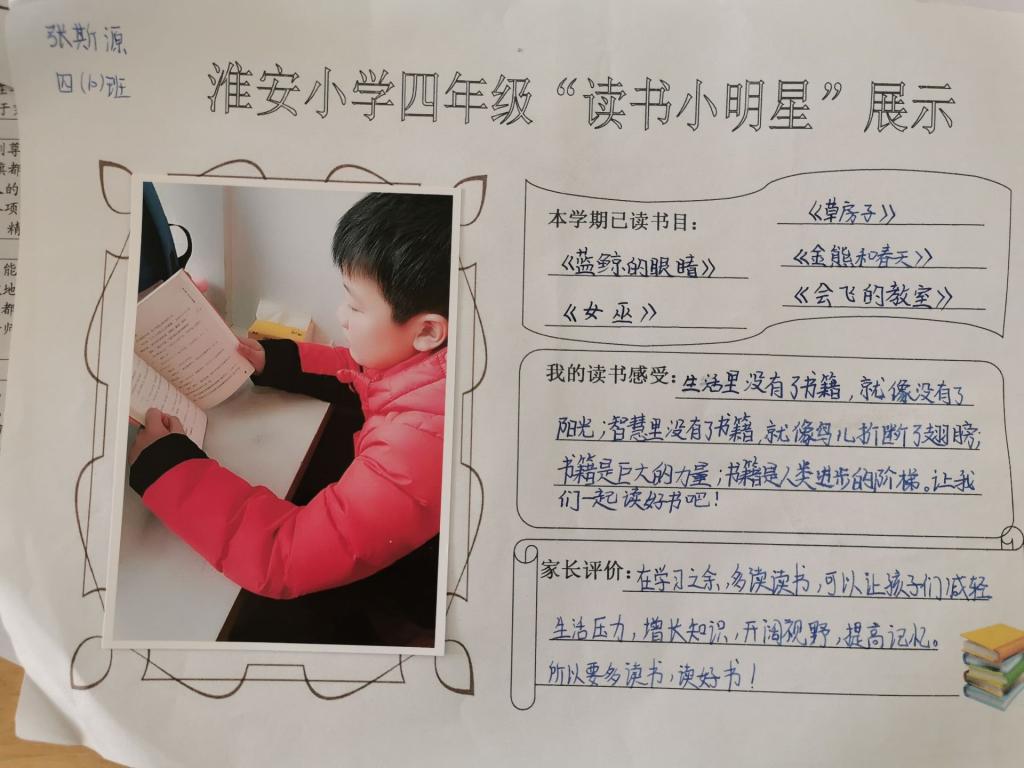 张斯源
四(6)班
淮安小学四年级“读书小明星”展示
本学期已读书目：
《蓝鲸的眼睛》
《女巫》
《草房子》
《金熊和春天》
《会飞的教室》
我的读书感受：生活里没有了书籍，就像没有了
阳光；智慧里没有了书籍，就像鸟儿折断了翅膀；
书籍是巨大的力量；书籍是人类进步的阶梯。让我
们一起读好书吧！
家长评价：在学习之余，多读读书，可以让孩子们减轻
生活压力，增长知识，开阔视野，提高记忆。
所以要多读书，读好书！